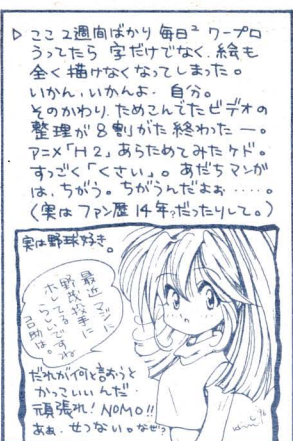 ▷ ここ2週間ばかり 毎日² ワープロ
うってたら 字だけでなく、絵も
全く描けなくなってしまった。
いかん、いかんよ。自分。
そのかわり、ためこんでたビデオの
整理が8割がた終わったー。
アニメ「H2」あらためてみたケド。
すっごく「くさい」。あだちマンガ
は、ちがう。ちがうんだよぉ‥‥‥。
(実は ファン歴 14年?だったりして。)
実は野球好き。
最近 マジに
野茂投手に
ホレてる
らしいですね
だれが何と言おうと
かっこいいんだ
頑張れ! NOMO!!
あぁ、せつない。なぜ?